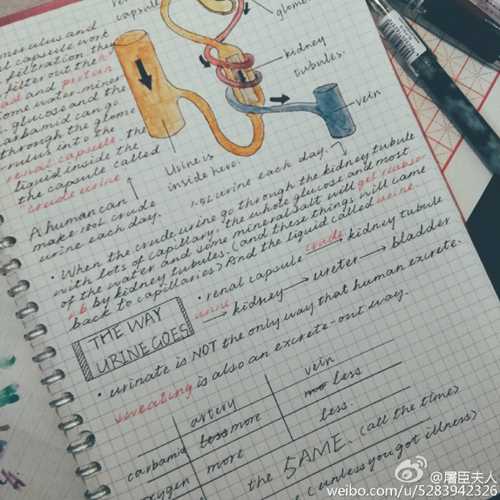 capsule
glome
merulus and
capsule work
filtration, they
filter out the
and protein
some water, miner
glucose and the
carbamid can go
through the glome
rulus into the
renal capsule, the
liquid inside the
the capsule called
"crude urine"
kidney
tubules.
vein
Urine is
inside here.
A human can
make 180L crude
urine each day.
urine each day.
· When the crude urine go through the kidney tubule
with lots of capillary, the whole glucose and most
of the water and some mineral salt will get reabsor
b by kidney tubules. (and these things will came
back to capillaries) And the liquid called urine.
· renal capsule crude kidney tubule
urine → kidney → ureter → bladder
THE WAY
URINE GOES
· urinate is NOT the only way that human excrete.
sweating is also an excrete-out way.
artery vein
carbamid less more less
oxygen more less.
the SAME. (all the time)
(unless you got illness)
@屠臣夫人
weibo.com/u/5283942326